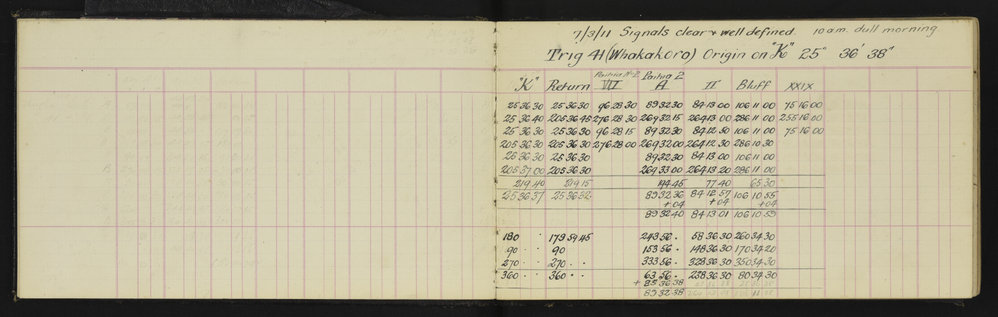 7/3/11 Signals clear & well defined. 10 a.m. dull morning
Trig 41 (Whakakoro) Origin on "K" 25° 36' 38"
Position No 2 Position 2
"K" Return VII A II Bluff XXIX
25 36 30 25 36 30 96 28 30 89 32 30 84 13 00 106 11 00 75 16 00
25 36 40 205 36 45 276 28 30 269 32 15 264 13 00 286 11 00 255 16 00
25 36 30 25 36 30 96 28 15 89 32 30 84 12 30 106 11 00 75 16 00
205 36 30 205 36 30 276 28 00 269 32 00 264 12 30 286 10 30
25 36 30 25 36 30 89 32 30 84 13 00 106 11 00
205 37 00 205 36 30 269 33 00 264 13 20 286 11 00
219 40 219 15 194 45 77 40 65 30
25 36 37 25 36 32 89 32 36 84 12 57 106 10 55
+04 +04 +04
89 32 40 84 13 01 106 10 59
180 · · 179 59 45 243 56 · 58 36 30 260 34 30
90 · · 90 153 56 · 148 36 30 170 34 20
270 · · 270 · · 333 56 · 328 36 30 350 34 30
360 · · 360 · · 63 56 · 238 36 30 80 34 30
+ 25 36 38
89 32 38